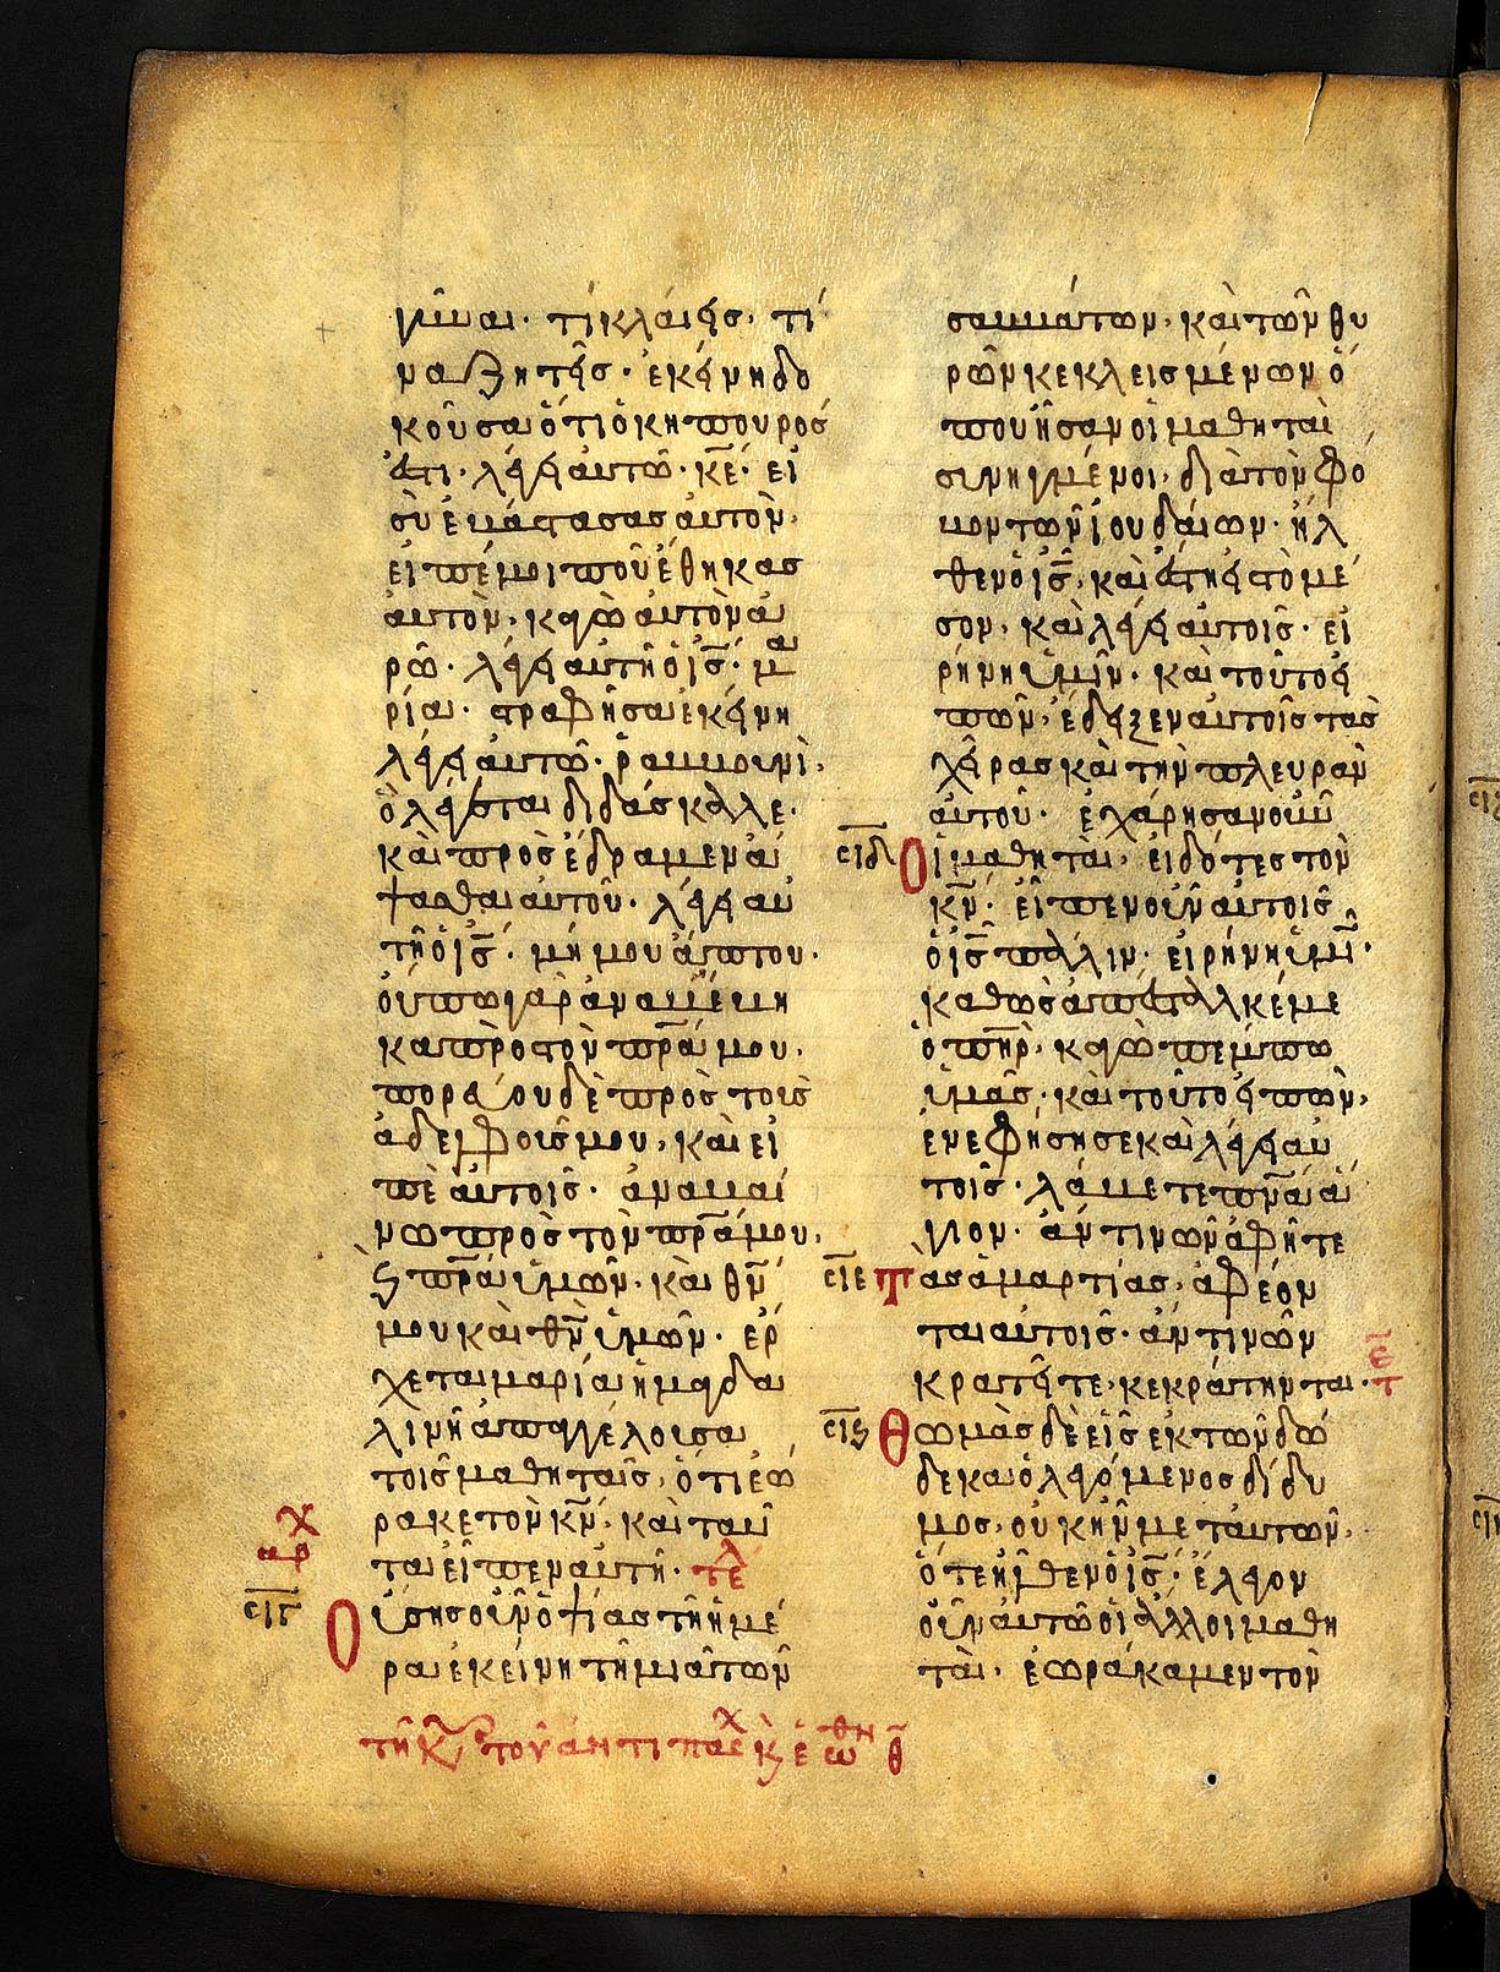 γύναι· τί κλαίεις· τί
να ζητεῖς· ἐκείνη δο
κοῦσα ὅτι ὁ κηπουρός
ἐστι· λέγει αὐτῶ· κ̅ε̅· εἰ
σὺ ἐβάστασας αὐτὸν,
εἰπέ μοι ποῦ ἔθηκας
αὐτὸν, κἀγὼ αὐτὸν ἀ
ρῶ· λέγει αὐτῆ ὁ ι̅ς̅· μα
ρία· στραφῆσα ἐκείνη
λέγει αὐτῶ· ῥαββουνὶ,
ὃ λέγεται διδάσκαλε·
καὶ προσέδραμεν ἅ
ψασθαι αὐτοῦ· λέγει αὐ
τῆ ὁ ι̅ς̅· μή μου ἅπτου·
οὔπω γὰρ ἀναβέβη
κα πρὸς τὸν π̅ρ̅α̅ μου·
πορεύου δὲ πρὸς τοὺς
ἀδελφούς μου, καὶ εἰ
πὲ αὐτοῖς· ἀναβαί
νω πρὸς τὸν π̅ρ̅α̅ μου,
ϗ π̅ρ̅α̅ ὑμῶν· καὶ θ̅ν̅
μου καὶ θ̅ν̅ ὑμῶν· ἔρ
χεται μαρία ἡ μαγδα
λινὴ ἀπαγγέλουσα
τοῖς μαθηταῖς, ὅτι ἑώ
ρακε τὸν κ̅ν̅, καὶ ταῦ
αρχ
τα εἶπεν αὐτῆ· τε̅λ
σ̅ι̅γ̅
Οὔσης οὖν ὀψίας τῆ ἡμέ
ρα ἐκείνη τῆ μιᾶ τῶν
τῆ κυ τοῦ ἀντιπασχ ϗ ἑωθην θ̅
σαββάτων, καὶ τῶν θυ
ρῶν κεκλεισμένων ὅ
που ἦσαν οἱ μαθηταὶ
συνηγμένοι, διὰ τὸν φό
βον τῶν ἰουδαίων· ἦλ
θεν ὁ ι̅ς̅, καὶ ἔστη εἰς τὸ μέ
σον, καὶ λέγει αὐτοῖς· εἰ
ρήνη ὑμῖν· καὶ τοῦτο εἰ
πὼν, ἔδειξεν αὐτοῖς τὰς
χεῖρας καὶ τὴν πλευρὰν
αὐτοῦ· ἐχάρησαν οὖν
σ̅ι̅δ̅
Οἱ μαθηταὶ, εἰδότες τὸν
κ̅ν̅· εἶπεν οὖν αὐτοῖς
ὁ ι̅ς̅ πάλιν· εἰρήνη ὑμῖν·
καθὼς ἀπέσταλκέ με
ὁ π̅η̅ρ̅, κἀγὼ πέμπω
ὑμᾶς· καὶ τοῦτο εἰπὼν,
ἐνεφύσησε καὶ λέγει αὐ
τοῖς· λάβετε π̅ν̅α̅ ἅ
γιον· ἄν τινων ἀφῆτε
σ̅ι̅ε̅
Τὰς ἁμαρτίας, ἀφέον
ται αὐτοῖς· ἄν τινων
κρατεῖτε, κεκράτηνται·
σ̅ι̅ϛ̅
Θωμᾶς δὲ εἷς ἐκ τῶν δώ
δεκα ὁ λεγόμενος δίδυ
μος, οὐκ ἦν μετ' αὐτῶν,
ὅτε ἦλθεν ὁ ι̅ς̅· ἔλεγον
οὖν αὐτῶ οἱ ἄλλοι μαθη
ταὶ, ἑωράκαμεν τὸν